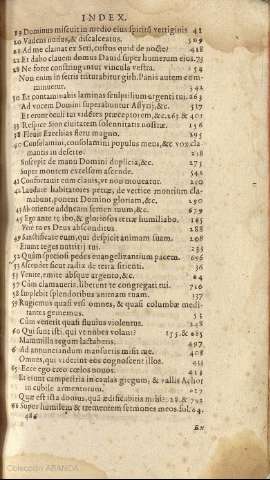 INDEX.
19 Dominus miscuit in medio eius spiritũ vertiginis 41
20 Vadens nudus, & discalceatus. 509
21 Ad me clamat ex Seri, custos quid de nocte? 418
22 Et dabo clauem domus Dauid super humerum eius. 73
28 Ne forte constringantur vincula vestra. 254
Non enim in serra triturabitur gith. Panis autem comminuetur. 342
30 Et contaminabis laminas sculptilium argenti tui. 263
Ad vocem Domini superabuntur Assyrij, &c. 517
Et erunt oculi tui vidẽtes præceptorem, &c. 263 & 401
33 Respice Sion ciuitatem solennitatis nostræ. 156
38 Fleuit Ezechias fletu magno. 295
40 Consolamini, consolamini populus meus, &c vox clamantis in deserto. 238
Suscepit de manu Domini duplicia, &c. 275
Super montem excelsum ascende. 542
41 Confortauit eum clauis, vt non moueatur. 210
42 Laudate habitatores petræ, de vertice montium clamabunt, ponent Domino gloriam, &c. 290
43 Ab oriente adducam semen tuum, &c. 679
45 Ego ante te ibo, & gloriosos terræ humiliabo. 185
Vere tu es Deus absconditus. 288
49 Sanctificate eum, qui despicit animam suam. 208
Erunt reges nutritij tui. 235
52 Quàm speciosi pedes euangelizantium pacem. 696
53 Ascendet sicut radix de terra sitienti. 36
55 Venite, emite absque argento, &c. 24
57 Cùm clamaueris, liberent te congregati tui. 716
58 Implebit splendoribus animam tuam. 337
59 Rugiemus quasi vrsi omnes, & quasi columbæ meditantes gememus. 55
Cùm venerit quasi fluuius violentus. 248
60 Qui sunt isti, qui vt nubes volant? 155. & 685
Mammilla regum lactaberis. 497
61 Ad annunciandum mansuetis misit me. 408
Omnes, qui viderint eos cognoscent illos. 455
65 Ecce ego creo cœlos nouos. 415
Et erunt campestria in caulas gregum, & vallis Achor in cubile armentorum. 627
Quæ est ista domus, quã ædificabitis mihi? 28. & 702
66 Super humilem & trementem sermones meos. fol. 64.
486
Ex
Colección ABANDA